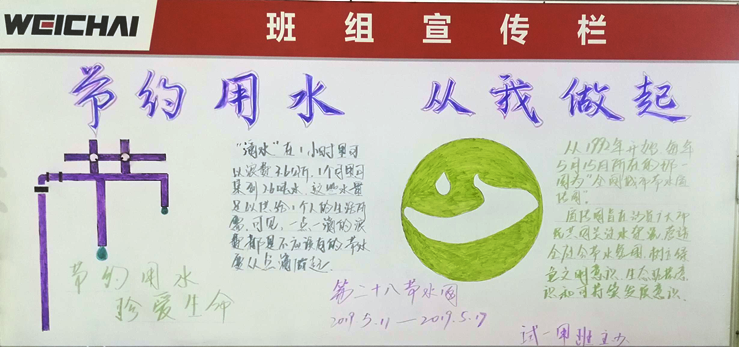 WEICHAI
班组宣传栏
节约用水 从我做起
"滴水"在1小时里可
以浪费3.6公斤,1个月里可
集到2.6吨水,这些水量
足以供给1个人的生活所
需.可见,一点一滴的浪
费都是不应该有的.节水
要从点滴做起.
从1992年开始,每年
5月15日所在的那一
周为"全国城市节水宣
传周".
宣传周旨在动员广大市
民共同关注水资源,营造
全社会节水氛围,树立绿
色文明意识、生态环境意
识和可持续发展意识.
节约用水
珍爱生命
第二十八节水周
2019.5.11—2019.5.17
试一甲班主办